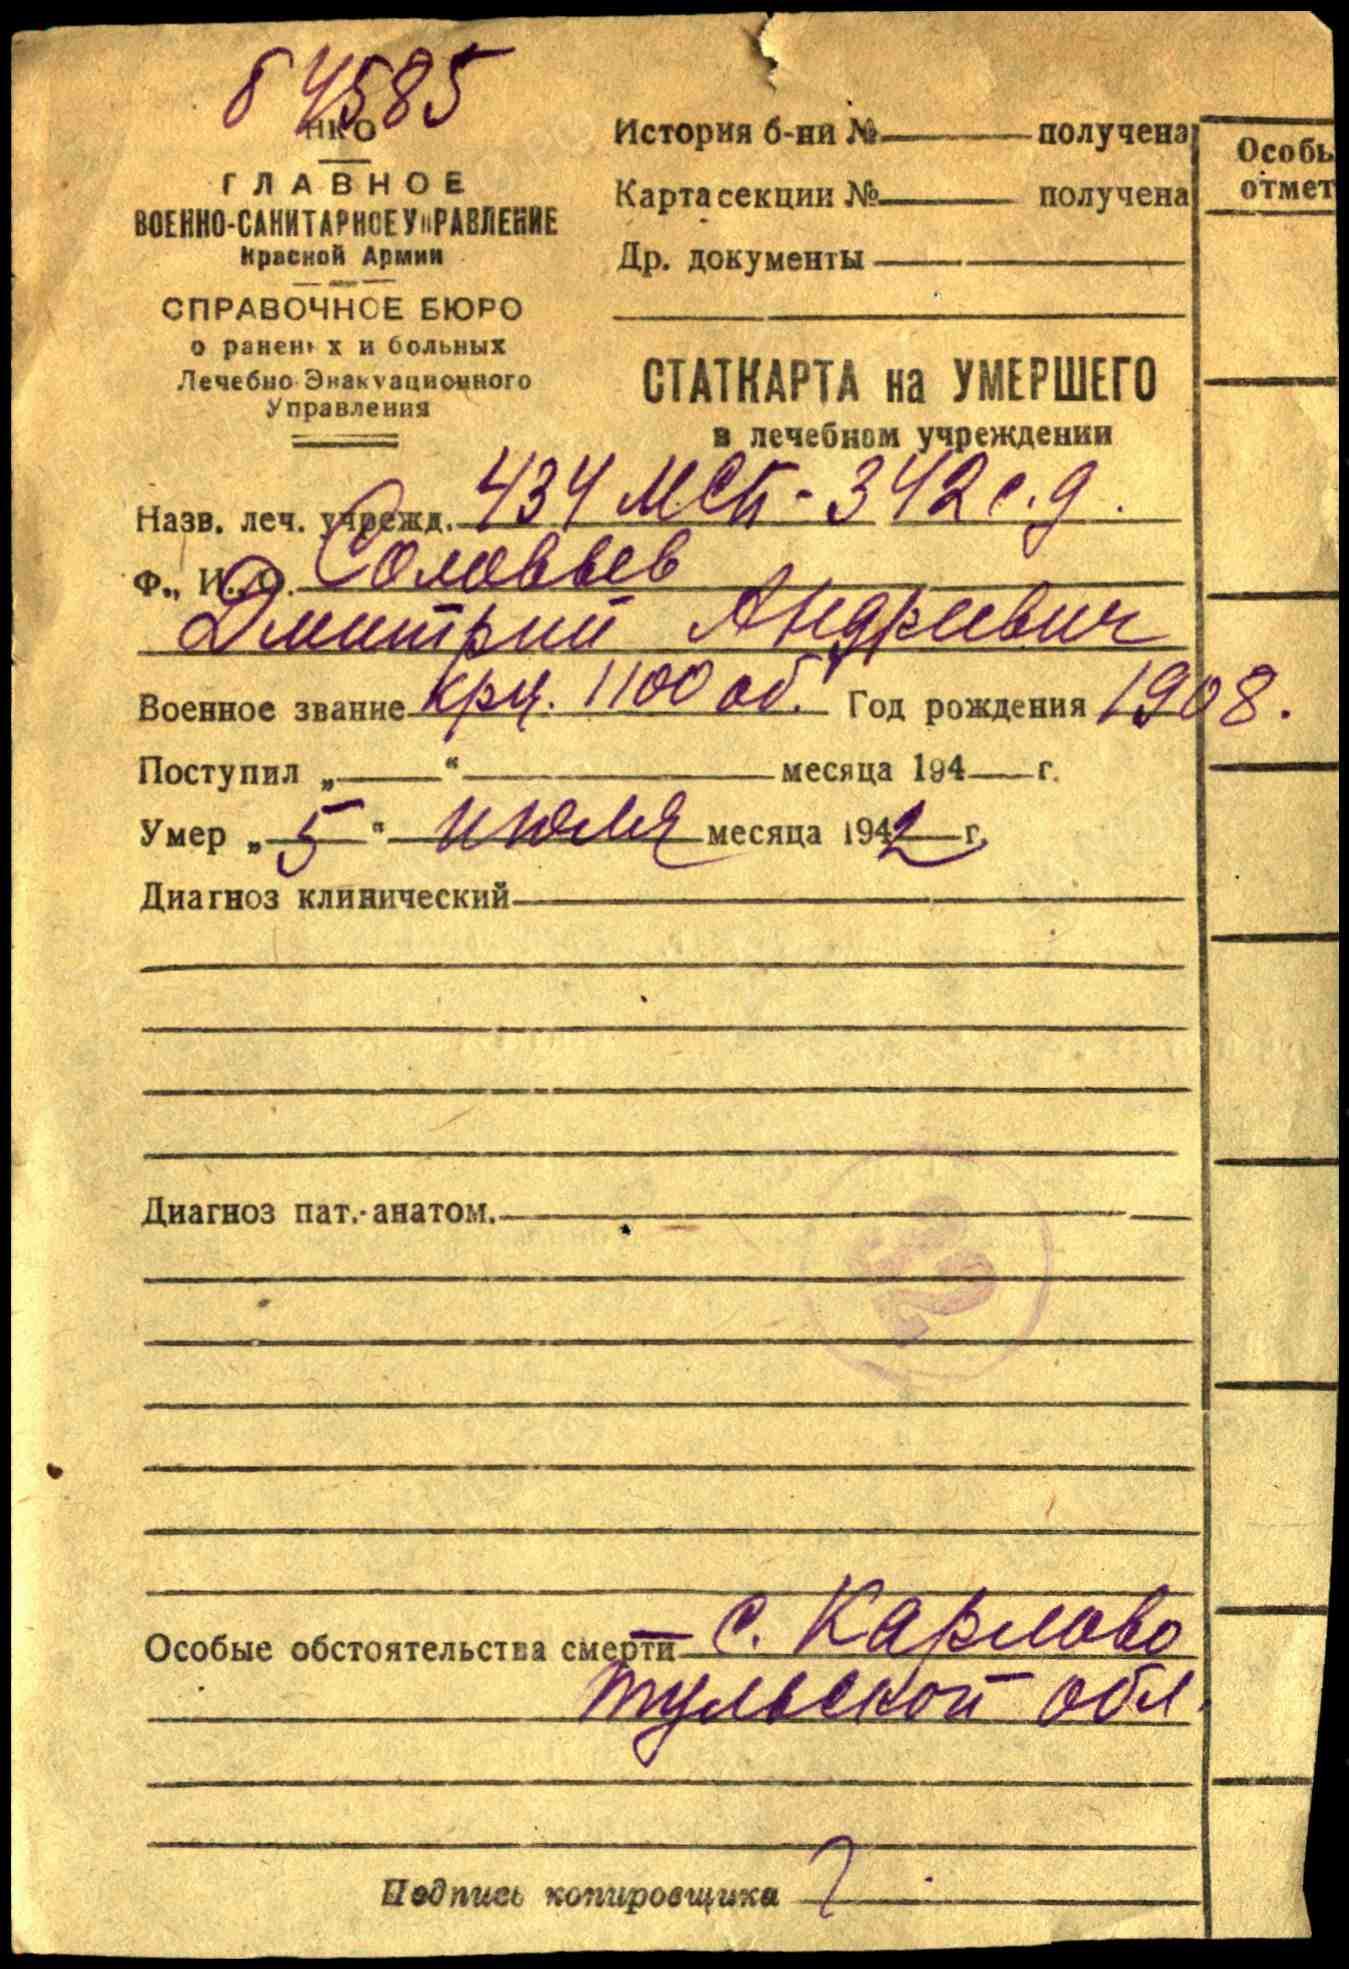 б 4585
НКО
ГЛАВНОЕ
ВОЕННО-САНИТАРНОЕ УПРАВЛЕНИЕ
Красной Армии
СПРАВОЧНОЕ БЮРО
о раненых и больных
Лечебно-Эвакуационного
Управления
История б-ни № получена
Карта секции № получена
Др. документы
Особы
отмет
СТАТКАРТА на УМЕРШЕГО
в лечебном учреждении
Назв. леч. учрежд. 434 МСБ - 342 с.д.
Ф., И., О. Соловьев
Дмитрий Андреевич
Военное звание крц. 1100 об. Год рождения 1908.
Поступил „ “ месяца 194 г.
Умер „ 5 “ июля месяца 1942 г.
Диагноз клинический
Диагноз пат.-анатом.
Особые обстоятельства смерти с. Карлово
тульской обл.
Подпись копировщика